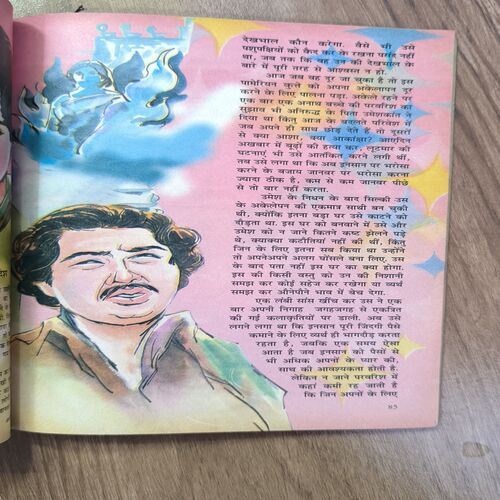 देखभाल कौन करेगा. वैसे भी उसे
पशुपक्षियों को कैद कर के रखना पसंद नहीं
था, जब तक कि वह उन की देखभाल के
बारे में पूरी तरह से आश्वस्त न हो.
आज जब वह दूर जा चुका है तो इस
पामेरियन कुत्ते को अपना अकेलापन दूर
करने के लिए पालना पड़ा. अकेले रहने पर
एक बार एक अनाथ बच्चे की परवरिश का
सुझाव भी अनिरुद्ध के पिता उमेशकांत ने
दिया था किंतु आज के बदलते परिवेश में
जब अपने ही साथ छोड़ देते हैं तो दूसरों
से क्या आशा, क्या आकांक्षा? आएदिन
अखबार में बूढ़ों की हत्या कर, लूटमार की
घटनाएं भी उसे आतंकित करने लगी थीं,
तब उसे लगा था कि अब इनसान पर भरोसा
करने के बजाय जानवर पर भरोसा करना
ज्यादा ठीक है, कम से कम जानवर पीछे
से तो वार नहीं करता.
उमेश के निधन के बाद सिल्की उस
के अकेलेपन की एकमात्र साथी बन चुकी
थी, क्योंकि इतना बड़ा घर उसे काटने को
दौड़ता था. इस घर को बनवाने में उसे और
उमेश को न जाने कितने कष्ट झेलने पड़े
थे, क्याक्या कटौतियां नहीं की थीं, किंतु
जिन के लिए इतना सब किया था उन्होंने
तो अपनेअपने अलग घोंसले बना लिए. उस
के बाद पता नहीं इस घर का क्या होगा.
इस की किसी वस्तु को उन की निशानी
समझ कर कोई सहेज कर रखेगा या व्यर्थ
समझ कर औनेपौने भाव में बेच देगा.
एक लंबी सांस खींच कर उस ने एक
बार अपनी निगाह जगहजगह से एकत्रित
की गई कलाकृतियों पर डाली. अब उसे
लगने लगा था कि इनसान पूरी जिंदगी पैसे
कमाने के लिए व्यर्थ ही भागदौड़ करता
रहता है, जबकि एक समय ऐसा
आता है जब इनसान को पैसों से
भी अधिक अपनों की प्यार की,
साथ की आवश्यकता होती है.
लेकिन न जाने परवरिश में
कहां कमी रह जाती है
कि जिन अपनों के लिए
85